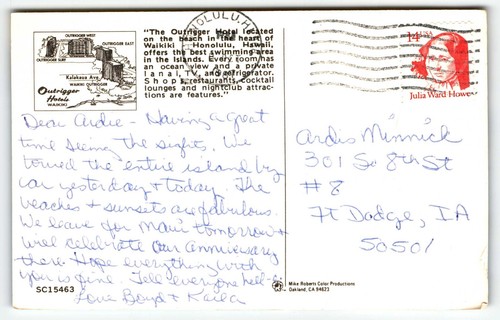 OUTRIGGER WEST
OUTRIGGER EAST
OUTRIGGER SURF
Kalakaua Ave.
WAIKIKI OUTRIGGER
Outrigger
Hotels
WAIKIKI
"The Outrigger Hotel located
on the beach in the heart of
Waikiki - Honolulu, Hawaii,
offers the best swimming area
in the Islands. Every room has
an ocean view and a private
lanai, TV, and refrigerator.
Shops, restaurants, cocktail
lounges and nightclub attrac-
tions are features."
HONOLULU, H
14 USA
Julia Ward Howe
Dear Ardie - Having a great
time seeing the sights. We
toured the entire island by
car yesterday & today. The
beaches & sunsets are fabulous.
We leave for Maui tomorrow &
will celebrate our anniversary
there. Hope everything with
you is fine. Tell everyone hell-o
Love Boyd & Karla
Ardis Minnick
301 So 8th St
#8
Ft Dodge, IA
50501
SC15463
Mike Roberts Color Productions
Oakland, CA 94623